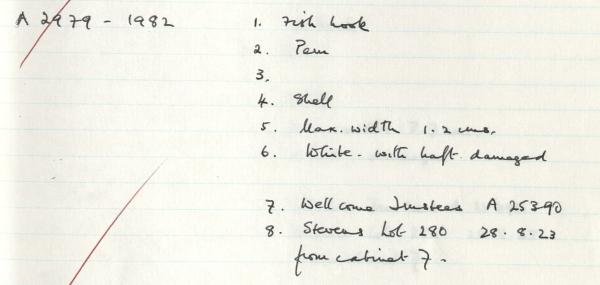 A 2979 - 1982
1. Fish hook
2. Peru
3.
4. Shell
5. Max. width 1.2 cms.
6. White - with haft damaged
7. Wellcome Trustees A 25390
8. Stevens Lot 280 28.8.23
from cabinet 7.